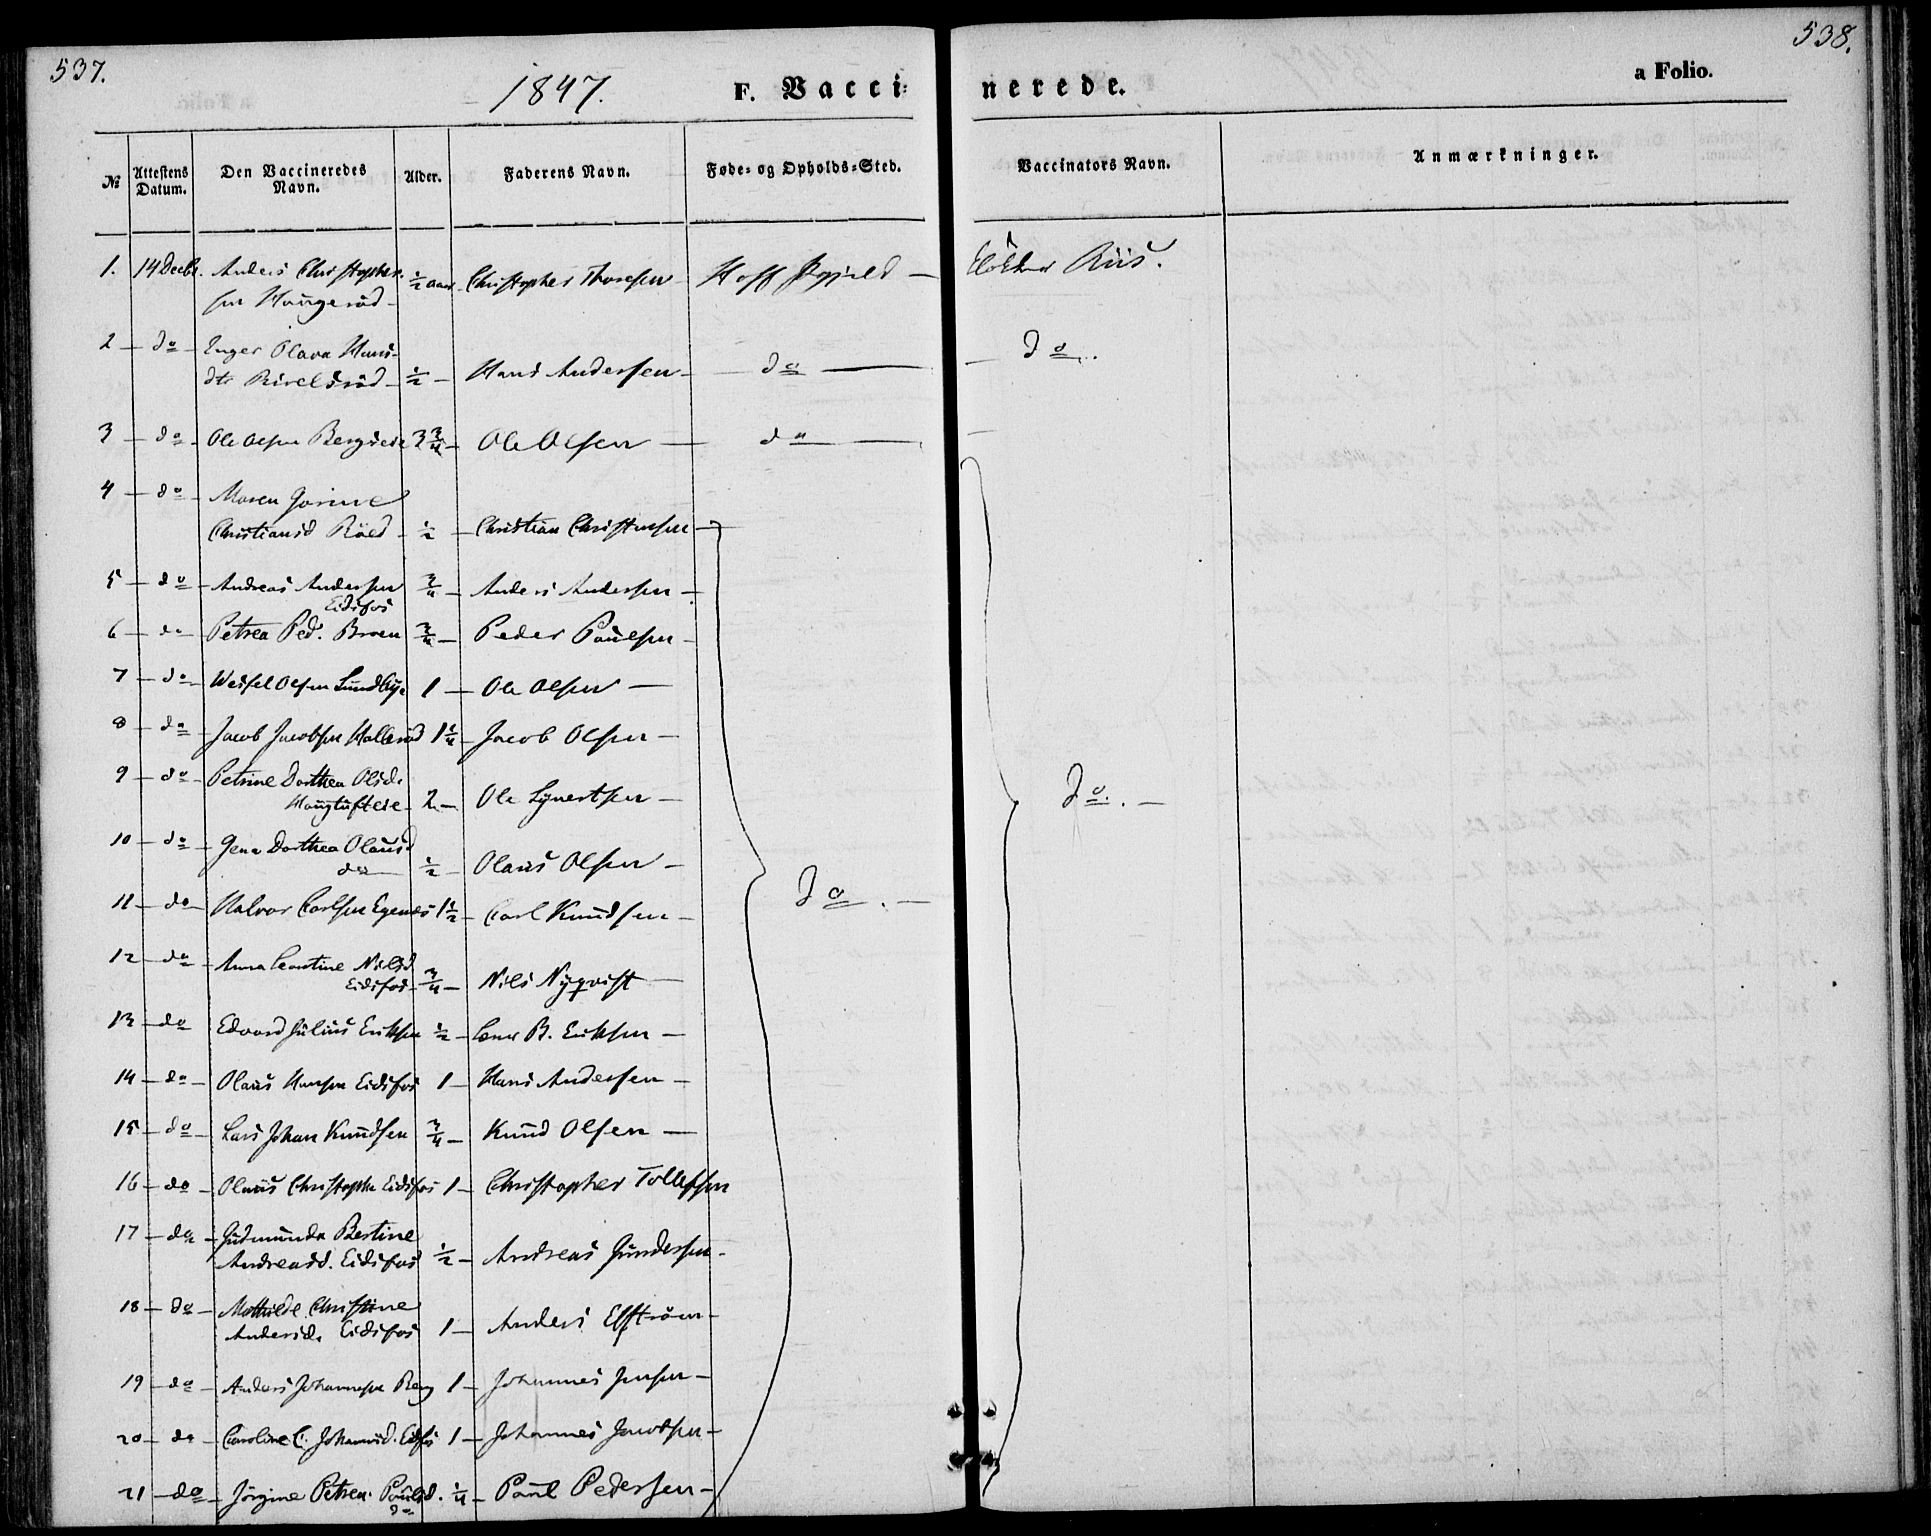 537.
538.
1847.
F. Vacci-
nerede.
a Folio.
№ Attestens Datum. Den Vaccineredes Navn. Alder. Faderens Navn. Føde- og Opholds-Sted. Vaccinators Navn. Anmærkninger.
1. 14 Decbr. Anders Christopher-
sen Haugeröd ½ aar Christopher Thoresen Hoff Præjeld Klokker Riis.
2 do Inger Olava Hans-
dtr ½ Hans Andersen do do.
3 do Ole Olsen 3¾ Ole Olsen do
4 do Maren Gorine
Christiansd Röed ½ Christian Christensen
5 do Andreas Andersen ¾ Anders Andersen
Eidsfos
6 do Petrea Ped. Broen ¾ Peder Paulsen
7 do Olsen Lundbÿe 1 Ole Olsen
8 do Jacob Jacobsen Halleröd 1¼ Jacob Olsen
9 do Petrine Dorthea Olsd.
Haugtufteie 2 Ole Syvertsen do.
10 do Gena Dorthea Olausd
do ½ Olaus Olsen do.
11 do Halvor Carlsen Egenes 1½ Carl Knudsen
12 do Anna Leontine Nilsd
Eidsfos ¾ Nils Nyqvist
13 do Edvard Julius Eriksen ½ B. Eriksen
14 do Olaus Hansen Eidsfos 1 Hans Andersen
15 do Lars Johan Knudsen ¾ Knud Olsen
16 do Olaus Christophe Eidsfos 1 Christopher Tollefsen
17 do Gudmunda Bertine
Andreasd. Eidsfos ½ Andreas Gundersen
18 do Mathilde Christine
Andersd. Eidsfos 1 Anders Elfström
19 do Anders Johannesen Berg 1 Johannes Jensen
20 do Caroline C. Johannesd. Eidfos 1 Johannes Jacobsen
21 do Jörgine Petrea Paulsd. ¼ Paul Pedersen
do